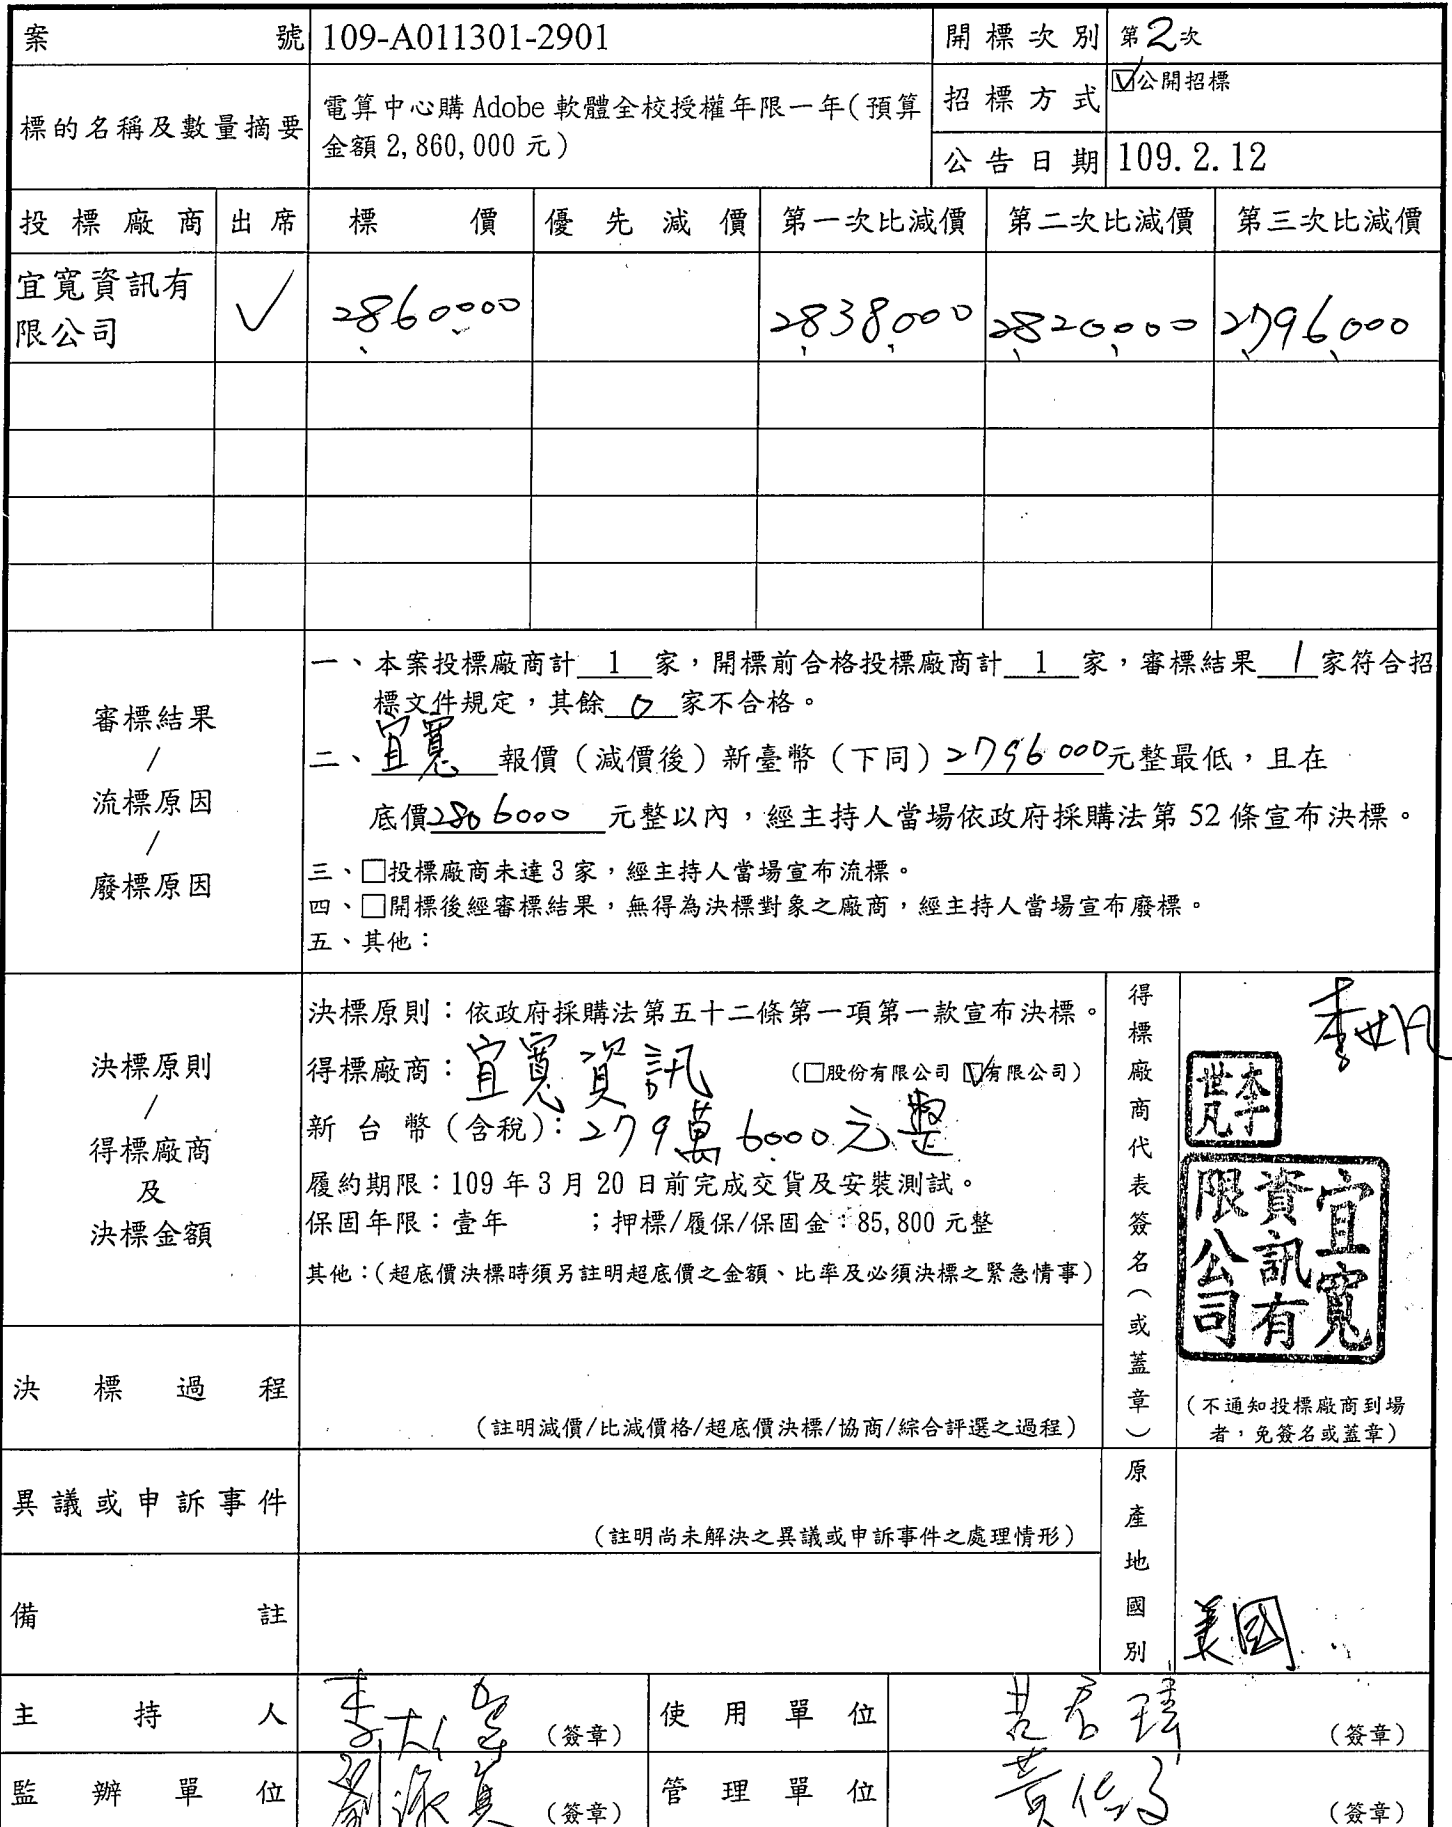 案號 109-A011301-2901 開標次別 第2次
標的名稱及數量摘要 電算中心購 Adobe 軟體全校授權年限一年(預算
金額 2,860,000 元)
招標方式 ☑公開招標
公告日期 109.2.12
投標廠商 出席 標價 優先減價 第一次比減價 第二次比減價 第三次比減價
宜寬資訊有
限公司 ✓ 2,860,000 2,838,000 2,820,000 2,796,000
審標結果
/
流標原因
/
廢標原因
一、本案投標廠商計 1 家，開標前合格投標廠商計 1 家，審標結果 1 家符合招
標文件規定，其餘 0 家不合格。
二、宜寬 報價（減價後）新臺幣（下同）2796000元整最低，且在
底價2806000 元整以內，經主持人當場依政府採購法第 52 條宣布決標。
三、□投標廠商未達 3 家，經主持人當場宣布流標。
四、□開標後經審標結果，無得為決標對象之廠商，經主持人當場宣布廢標。
五、其他：
決標原則
/
得標廠商
及
決標金額
決標原則：依政府採購法第五十二條第一項第一款宣布決標。
得標廠商：宜寬資訊 (□股份有限公司 ☑有限公司)
新台幣(含稅)：279萬6000元整
履約期限：109 年 3 月 20 日前完成交貨及安裝測試。
保固年限：壹年 ；押標/履保/保固金：85,800 元整
其他：(超底價決標時須另註明超底價之金額、比率及必須決標之緊急情事)
得標廠商代表簽名(或蓋章)
李世凡
李世凡
宜寬
資訊有
限公司
(不通知投標廠商到場
者，免簽名或蓋章)
決標過程
(註明減價/比減價格/超底價決標/協商/綜合評選之過程)
異議或申訴事件
(註明尚未解決之異議或申訴事件之處理情形)
原產地國別 美國
備註
主持人 (簽章) 使用單位 (簽章)
監辦單位 (簽章) 管理單位 (簽章)